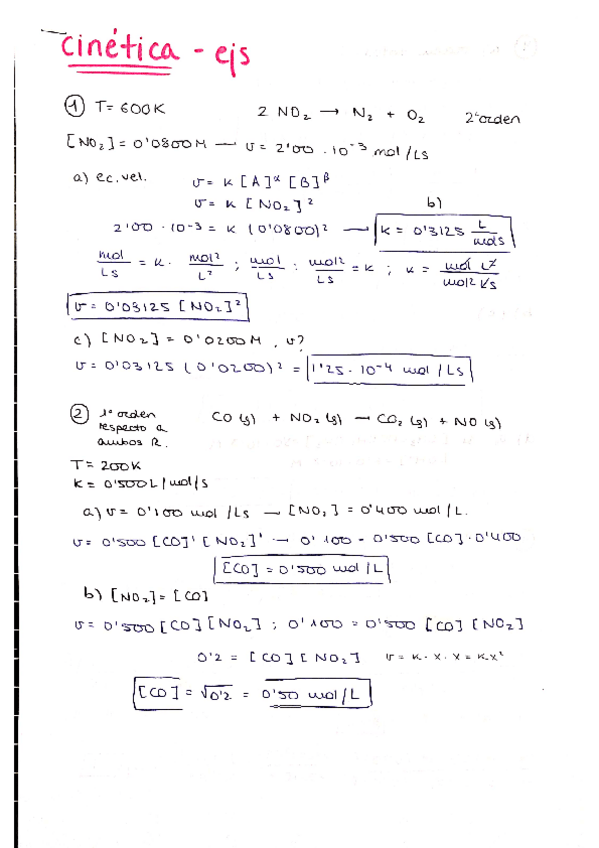 cinética - ejs
① T= 600K 2 NO₂ → N₂ + O₂ 2º orden
[NO₂] = 0'0800M — v = 2'00 · 10⁻³ mol/Ls
a) ec. vel. v = K [A]^α [B]^β
v = K [NO₂]² b)
2'00 · 10⁻³ = K (0'0800)² → K = 0'3125 L/mols
mol/Ls = K · mol²/L² ; mol/Ls : mol²/Ls = K ; K = mol L²/mol² Ls
v = 0'03125 [NO₂]²
c) [NO₂] = 0'0200M, v?
v = 0'03125 (0'0200)² = 1'25 · 10⁻⁴ mol/Ls
② 1º orden CO (g) + NO₂ (g) — CO₂ (g) + NO (g)
respecto a
ambos R.
T= 200K
K = 0'500L/mol/s
a) v = 0'100 mol/Ls → [NO₂] = 0'400 mol/L.
v = 0'500 [CO]¹ [NO₂]¹ → 0'100 = 0'500 [CO] · 0'400
[CO] = 0'500 mol/L
b) [NO₂] = [CO]
v = 0'500 [CO] [NO₂] ; 0'100 = 0'500 [CO] [NO₂]
0'2 = [CO] [NO₂] v = K · x · x = K·x²
[CO] = √0'2 = 0'50 mol/L